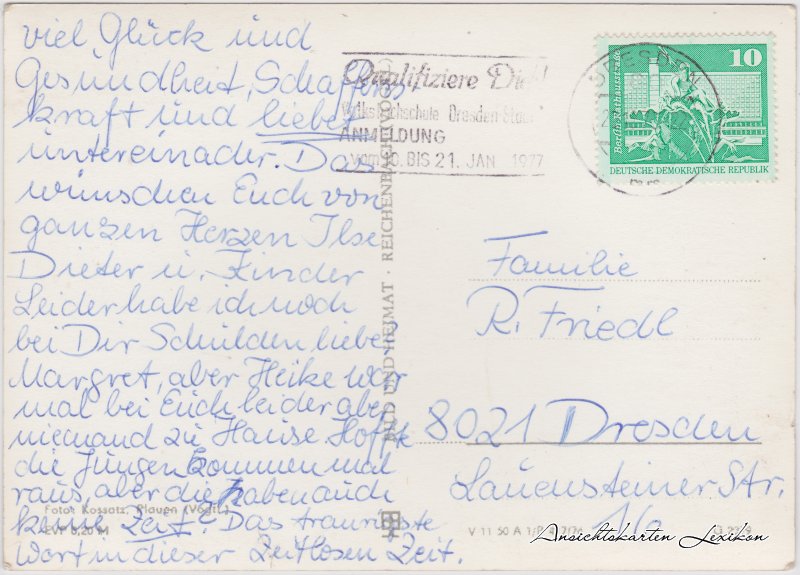 viel Glück und
Gesundheit, Schaffens
kraft und liebet
untereinader. Das
wünschen Euch von
ganzen Herzen Ilse
Dieter u. Kinder
Leider habe ich noch
bei Dir Schulden liebe
Margret, aber Heike war
mal bei Euch leider aber
niemand zu Hause. Hoffe
die Jungen kommen mal
raus, aber die haben auch
keine Zeit. Das traurigste
Wort in dieser Zeitlosen Zeit.
Foto: Kossatz, Plauen (Vogtl.)
EVP 0,20 M
BILD UND HEIMAT · REICHENBACH (VOGTL)
Qualifiziere Dich!
Volkshochschule Dresden-Stadt
ANMELDUNG
vom 10. BIS 21. JAN 1977
DRESDEN
Berlin, Rathausstraße
10
DEUTSCHE DEMOKRATISCHE REPUBLIK
Familie
R. Friedl
8021 Dresden
Lauensteiner Str.
V 11 50 A 1/B
Ansichtskarten Lexikon